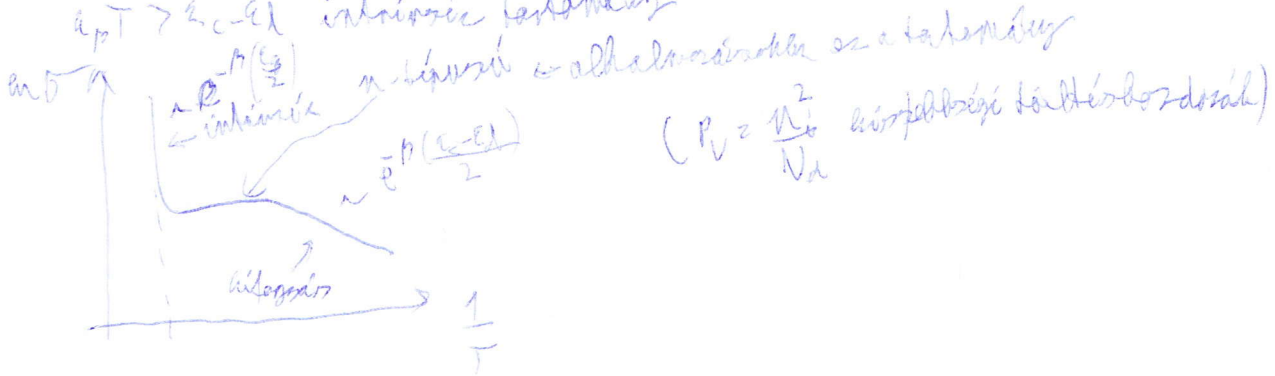 k_BT > ε_c-ε_d intrinszic tartomány
ln σ
~ e^{-β(εg/2)}
← intrinszic
n-típusú ← alkalmazásokban ez a tartomány
(P_v = n_i^2/N_d kisebbségi töltéshordozók)
~ e^{-β(ε_c-ε_d)/2}
kifagyás
1/T